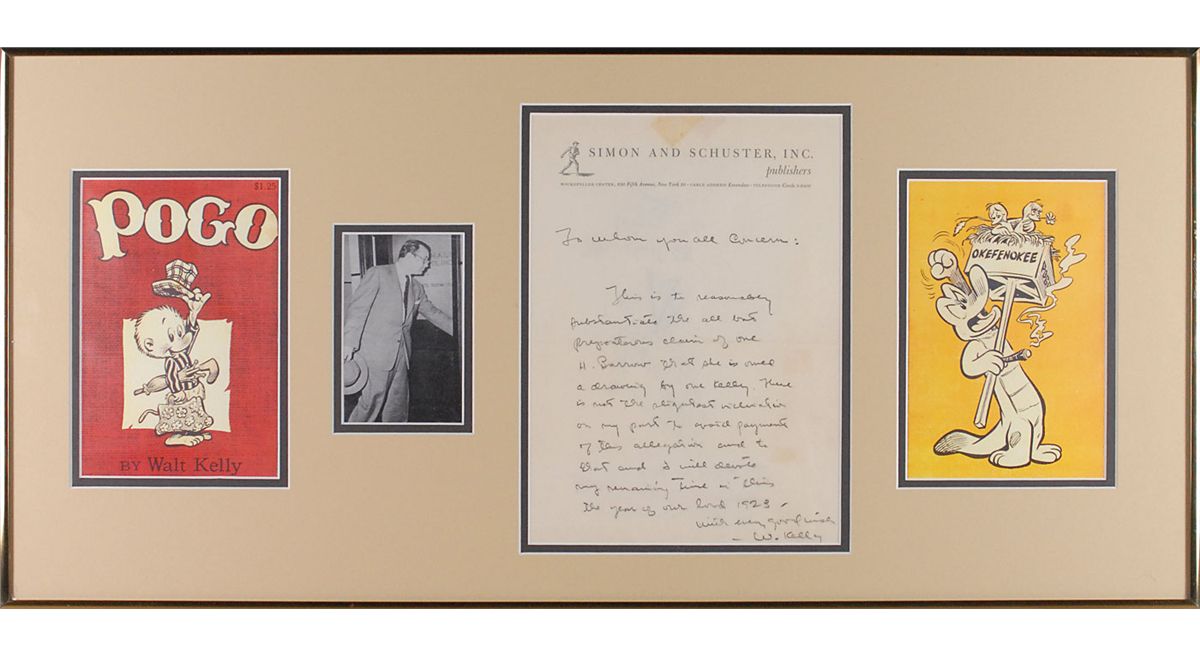 $1.25
POGO
BY Walt Kelly
SIMON AND SCHUSTER, INC.
publishers
ROCKEFELLER CENTER, 630 Fifth Avenue, New York 20 · CABLE ADDRESS Essandess · TELEPHONE Circle
To whom you all concern:
This is to reasonably
substantiate the all but
preposterous claim of one
H. Barrow that she is owed
a drawing by one Kelly. There
is not the slightest inclination
on my part to avoid payment
of this allegation and to
that end I will devote
my remaining time in this
the year of our lord 1923 –
with every good wish
– W. Kelly
OKEFENOKEE